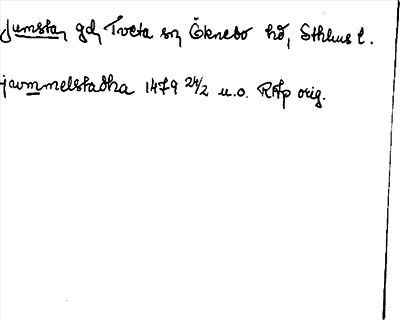 Jumsta, gd, Tveta sn, Öknebo hd, Sthlms l.
javmmelstadha 1479 24/2 u.o. RAp orig.